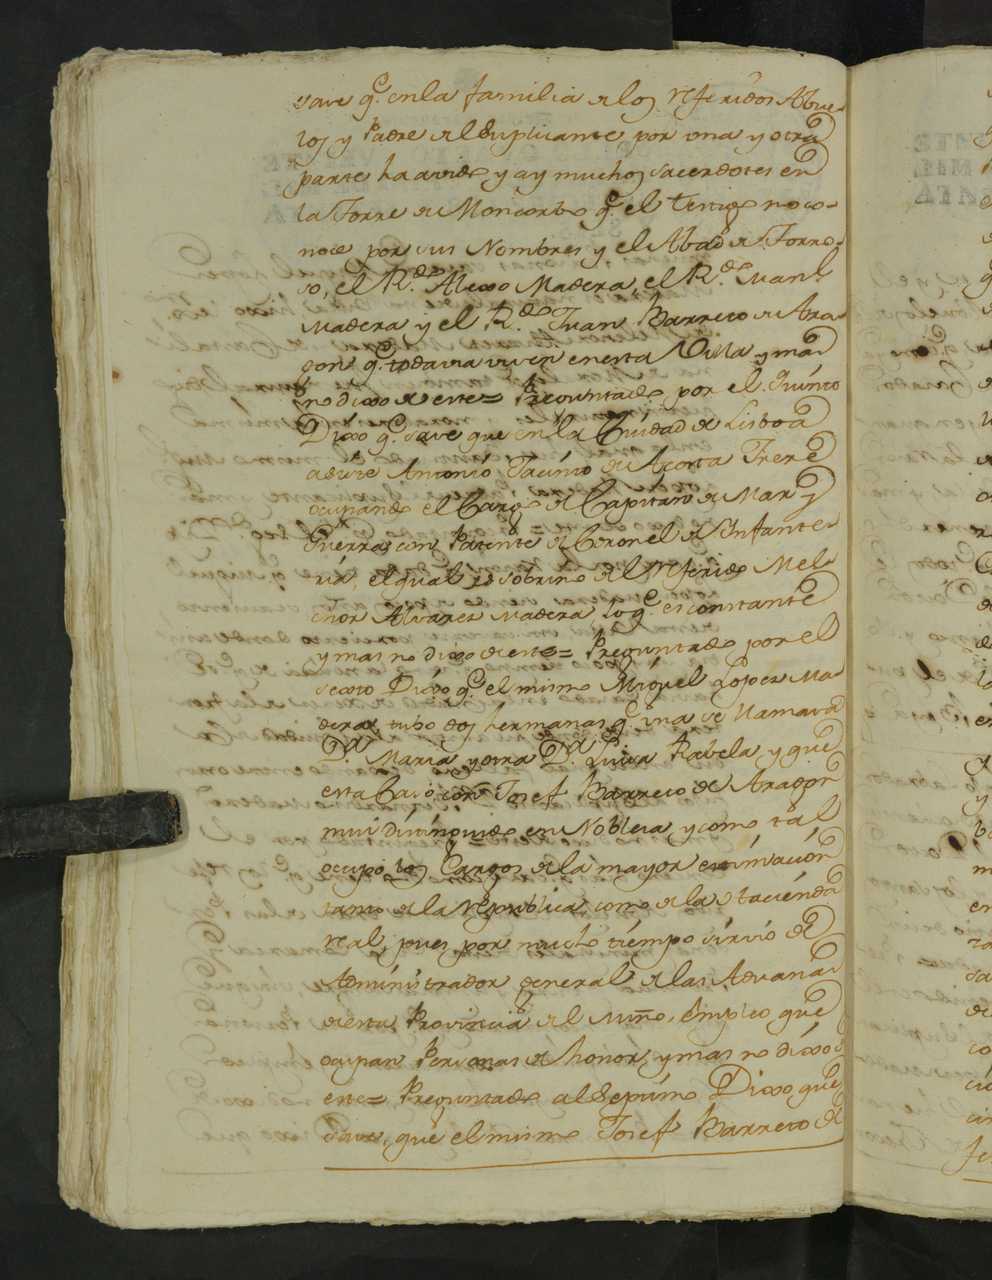 save q.e en la familia de los referidos Abue-
los y Padre del Suplicante, por una y otra
parte ha avido y ay muchos sacerdotes en
la Torre de Moncorbo q.e el testigo no co-
noce por sus Nombres y el Abad de Torre-
so, el R.do Alexo Madera, el R.do Man.l
Madera y el R.do Juan Barreto de Ara-
gon q.e todavia viven en esta Villa y mas
no dixo de este= Preguntado por el Quinto
Dixo q.e save que en la Ciudad de Lisboa
asiste Antonio Jacinto de Acosta Frere
ocupando el Cargo de Capitan de Mar y
Guerra con Patente de Coronel de Infante-
ria, el qual es sobrino del referido Mel-
chor Alvares Madera, lo q.e es constante
y mas no dixo de este= Preguntado por el
sexto Dixo q.e el mismo Miguel Lopez Ma-
dera, tubo dos hermanas q.e una se llamava
D.a Maria y otra D.a Luisa Rabela y que
esta Casó con Josef Barreto de Aragon
mui distinguido en Nobleza, y como tal
ocupo los Cargos de la mayor estimación
tanto de la republica, como de la Hacienda
real, pues por mucho tiempo sirvió de
Administrador general de las Advanas
de esta Provincia del Miño, Empleo que
ocupan Personas de honor, y mas no dixo de
este= Preguntado al Septimo Dixo, que
save, que el mismo Josef Barreto de